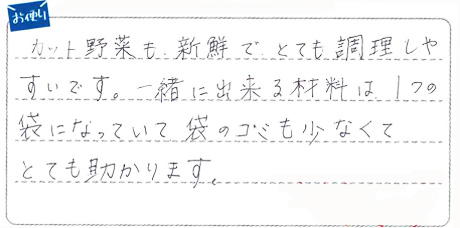 お便り
カット野菜も新鮮で、とても調理しや
すいです。一緒に出来る材料は1つの
袋になっていて袋のゴミも少なくて
とても助かります。